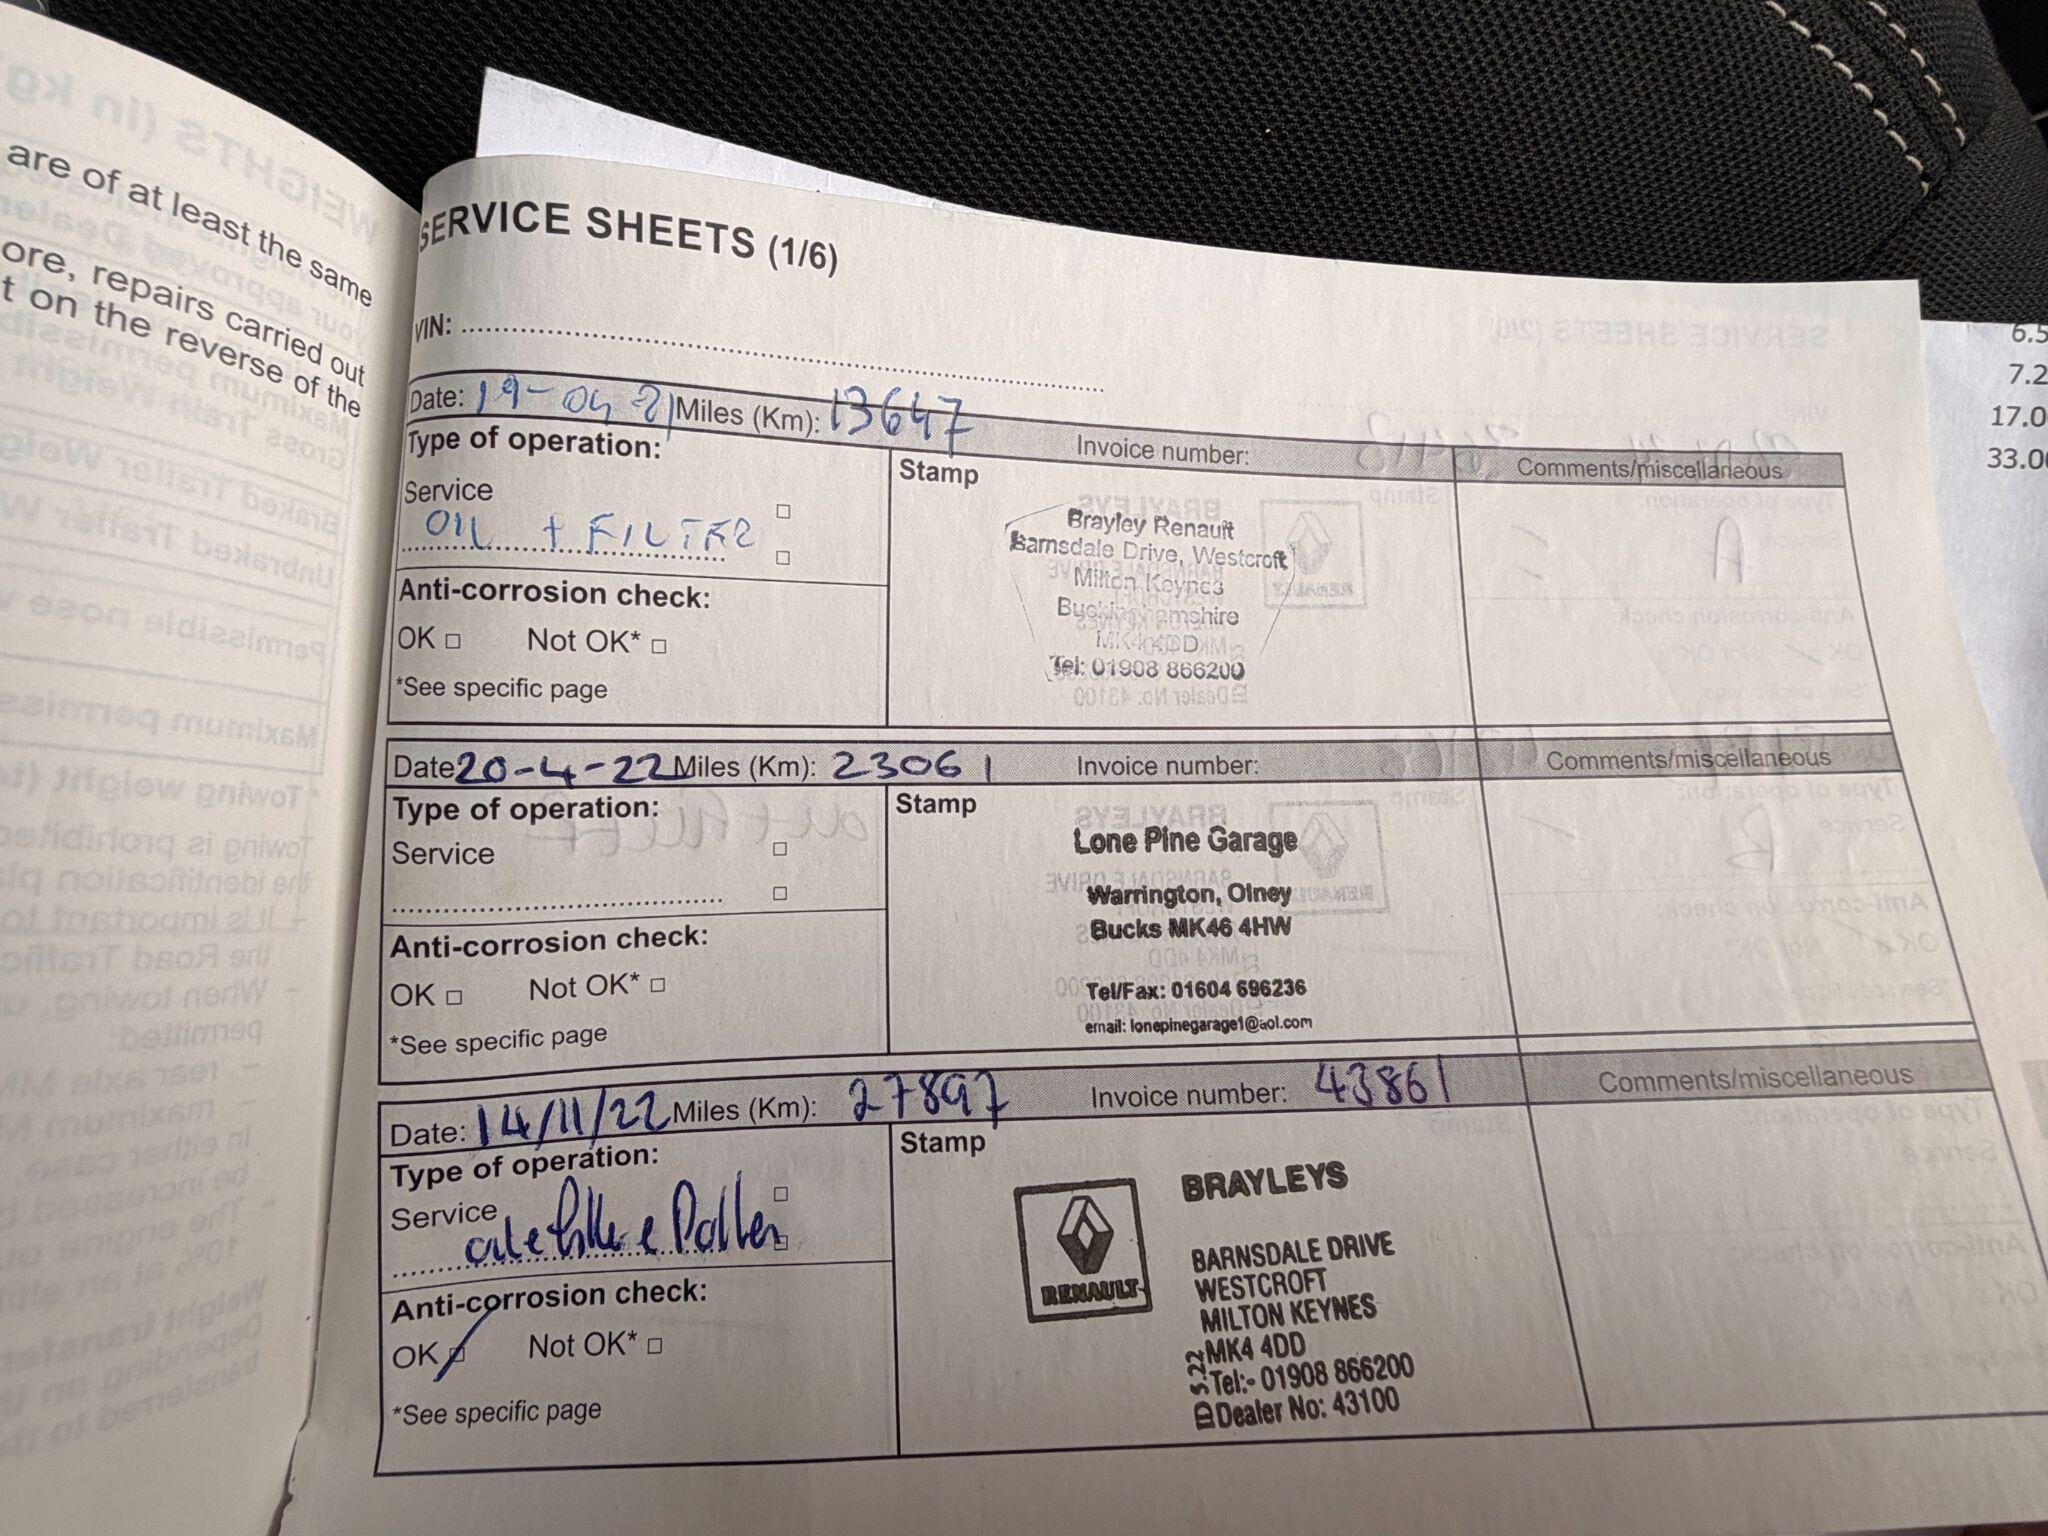 are of at least the same
ore, repairs carried out
t on the reverse of the
SERVICE SHEETS (1/6)
VIN:
Date: 19-04-21 Miles (Km): 13647 Invoice number: Comments/miscellaneous
Type of operation:
Service
OIL + FILTER
Anti-corrosion check:
OK Not OK*
*See specific page
Stamp
Brayley Renault
Barnsdale Drive, Westcroft
Milton Keynes
Buckinghamshire
MK4 4DD
Tel: 01908 866200
Date 20-4-22 Miles (Km): 23061 Invoice number: Comments/miscellaneous
Type of operation:
Service
Anti-corrosion check:
OK Not OK*
*See specific page
Stamp
Lone Pine Garage
Warrington, Olney
Bucks MK46 4HW
Tel/Fax: 01604 696236
email: lonepinegarage1@aol.com
Date: 14/11/22 Miles (Km): 27897 Invoice number: 43861 Comments/miscellaneous
Type of operation:
Service
Anti-corrosion check:
OK Not OK*
*See specific page
Stamp
RENAULT
BRAYLEYS
BARNSDALE DRIVE
WESTCROFT
MILTON KEYNES
MK4 4DD
Tel:- 01908 866200
Dealer No: 43100
6.5
7.2
17.0
33.00